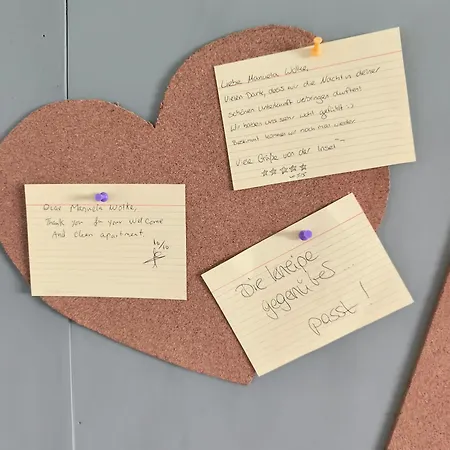 Liebe Manuela Wölke,
Vielen Dank, dass wir die Nacht in deiner
schönen Unterkunft verbringen durften!
Wir haben uns sehr wohl gefühlt :)
Bestimmt kommen wir noch mal wieder
Viele Grüße von der Insel~
☆☆☆☆☆
5/5
Dear Manuela Wölke,
Thank you for your Welcome
And Clean apartment.
10/10
Die kneipe
gegenüber ...
passt!